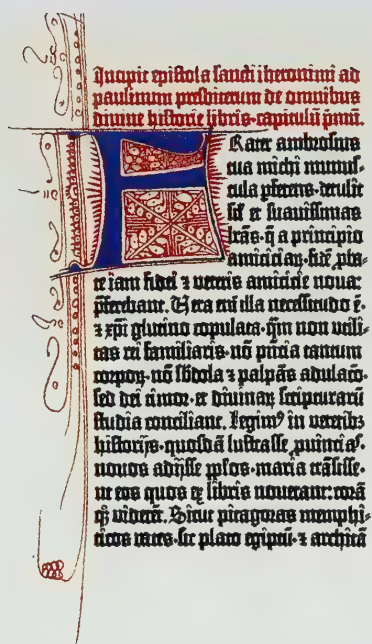 Incipit epistola sancti iheronimi ad
paulinum presbiterum de omnibus
divine historie libris·capitulū pmū.
FRater ambrosius
tua michi munus-
cula pferens·detulit
sil' et suavissimas
lrās·q̄ a principio
amiciciaꝝ·fidē pba-
te iam fidei ⁊ veteris amicicie nova:
pferebant. Vera enī illa necessitudo ē·
⁊ xpī glutino copulata·qm̄ non utili-
tas rei familiaris·nō pn̄tia tantum
corpoꝝ·nō sbdola ⁊ palpās adulacō·
sed dei timor·et divinaꝝ scripturarū
studia conciliant. Legimꝰ in veteribꝫ
historijs·quosdā lustrasse puīciaˢ·
novos adijsse pplos·maria trāsisse·
ut eos quos ex libris noverant: corā
qꝫ viderēt. Sicut pitagoras memphi-
ticos vates·sic plato egiptū·⁊ architā